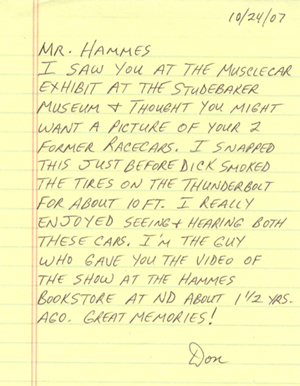 10/24/07
MR. HAMMES
I SAW YOU AT THE MUSCLECAR
EXHIBIT AT THE STUDEBAKER
MUSEUM & THOUGHT YOU MIGHT
WANT A PICTURE OF YOUR 2
FORMER RACECARS. I SNAPPED
THIS JUST BEFORE DICK SMOKED
THE TIRES ON THE THUNDERBOLT
FOR ABOUT 10 FT. I REALLY
ENJOYED SEEING & HEARING BOTH
THESE CARS. I'M THE GUY
WHO GAVE YOU THE VIDEO OF
THE SHOW AT THE HAMMES
BOOKSTORE AT ND ABOUT 1 1/2 YRS.
AGO. GREAT MEMORIES!
Don